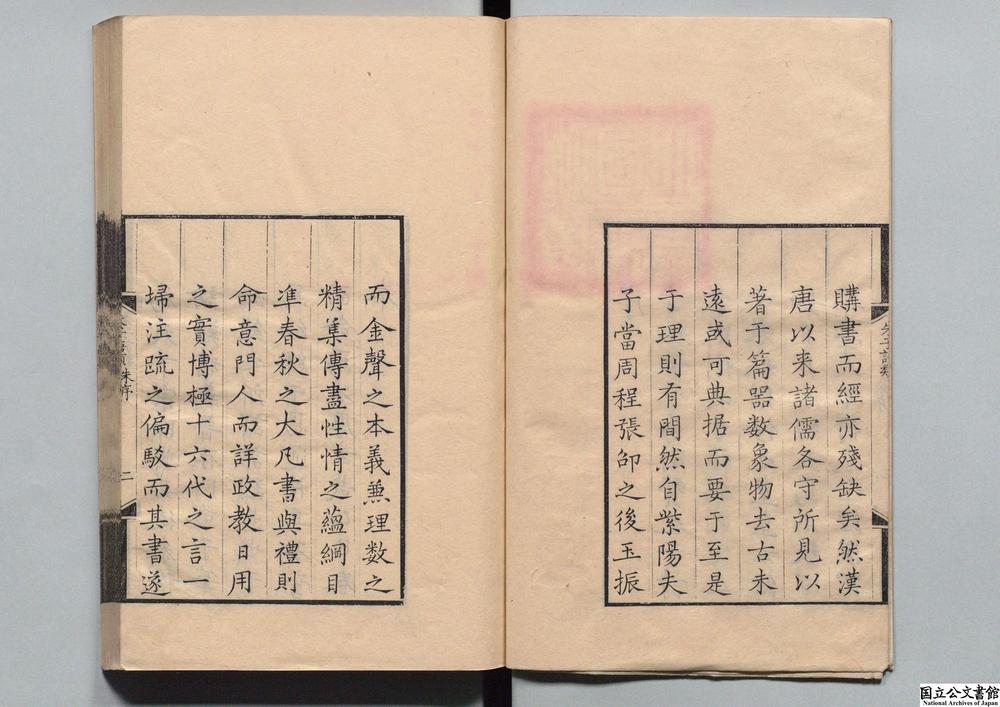 購書而經亦殘缺矣然漢
唐以来諸儒各守所見以
著于篇噐数象物去古未
遠或可典据而要于至是
于理則有間然自紫陽夫
子當周程張邵之後玉振
而金聲之本義兼理数之
精集傳盡性情之蘊綱目
凖春秋之大凡書與禮則
命意門人而詳政教日用
之實博極十六代之言一
埽注疏之偏駁而其書遂
朱子語類
朱序
二
国立公文書館
National Archives of Japan